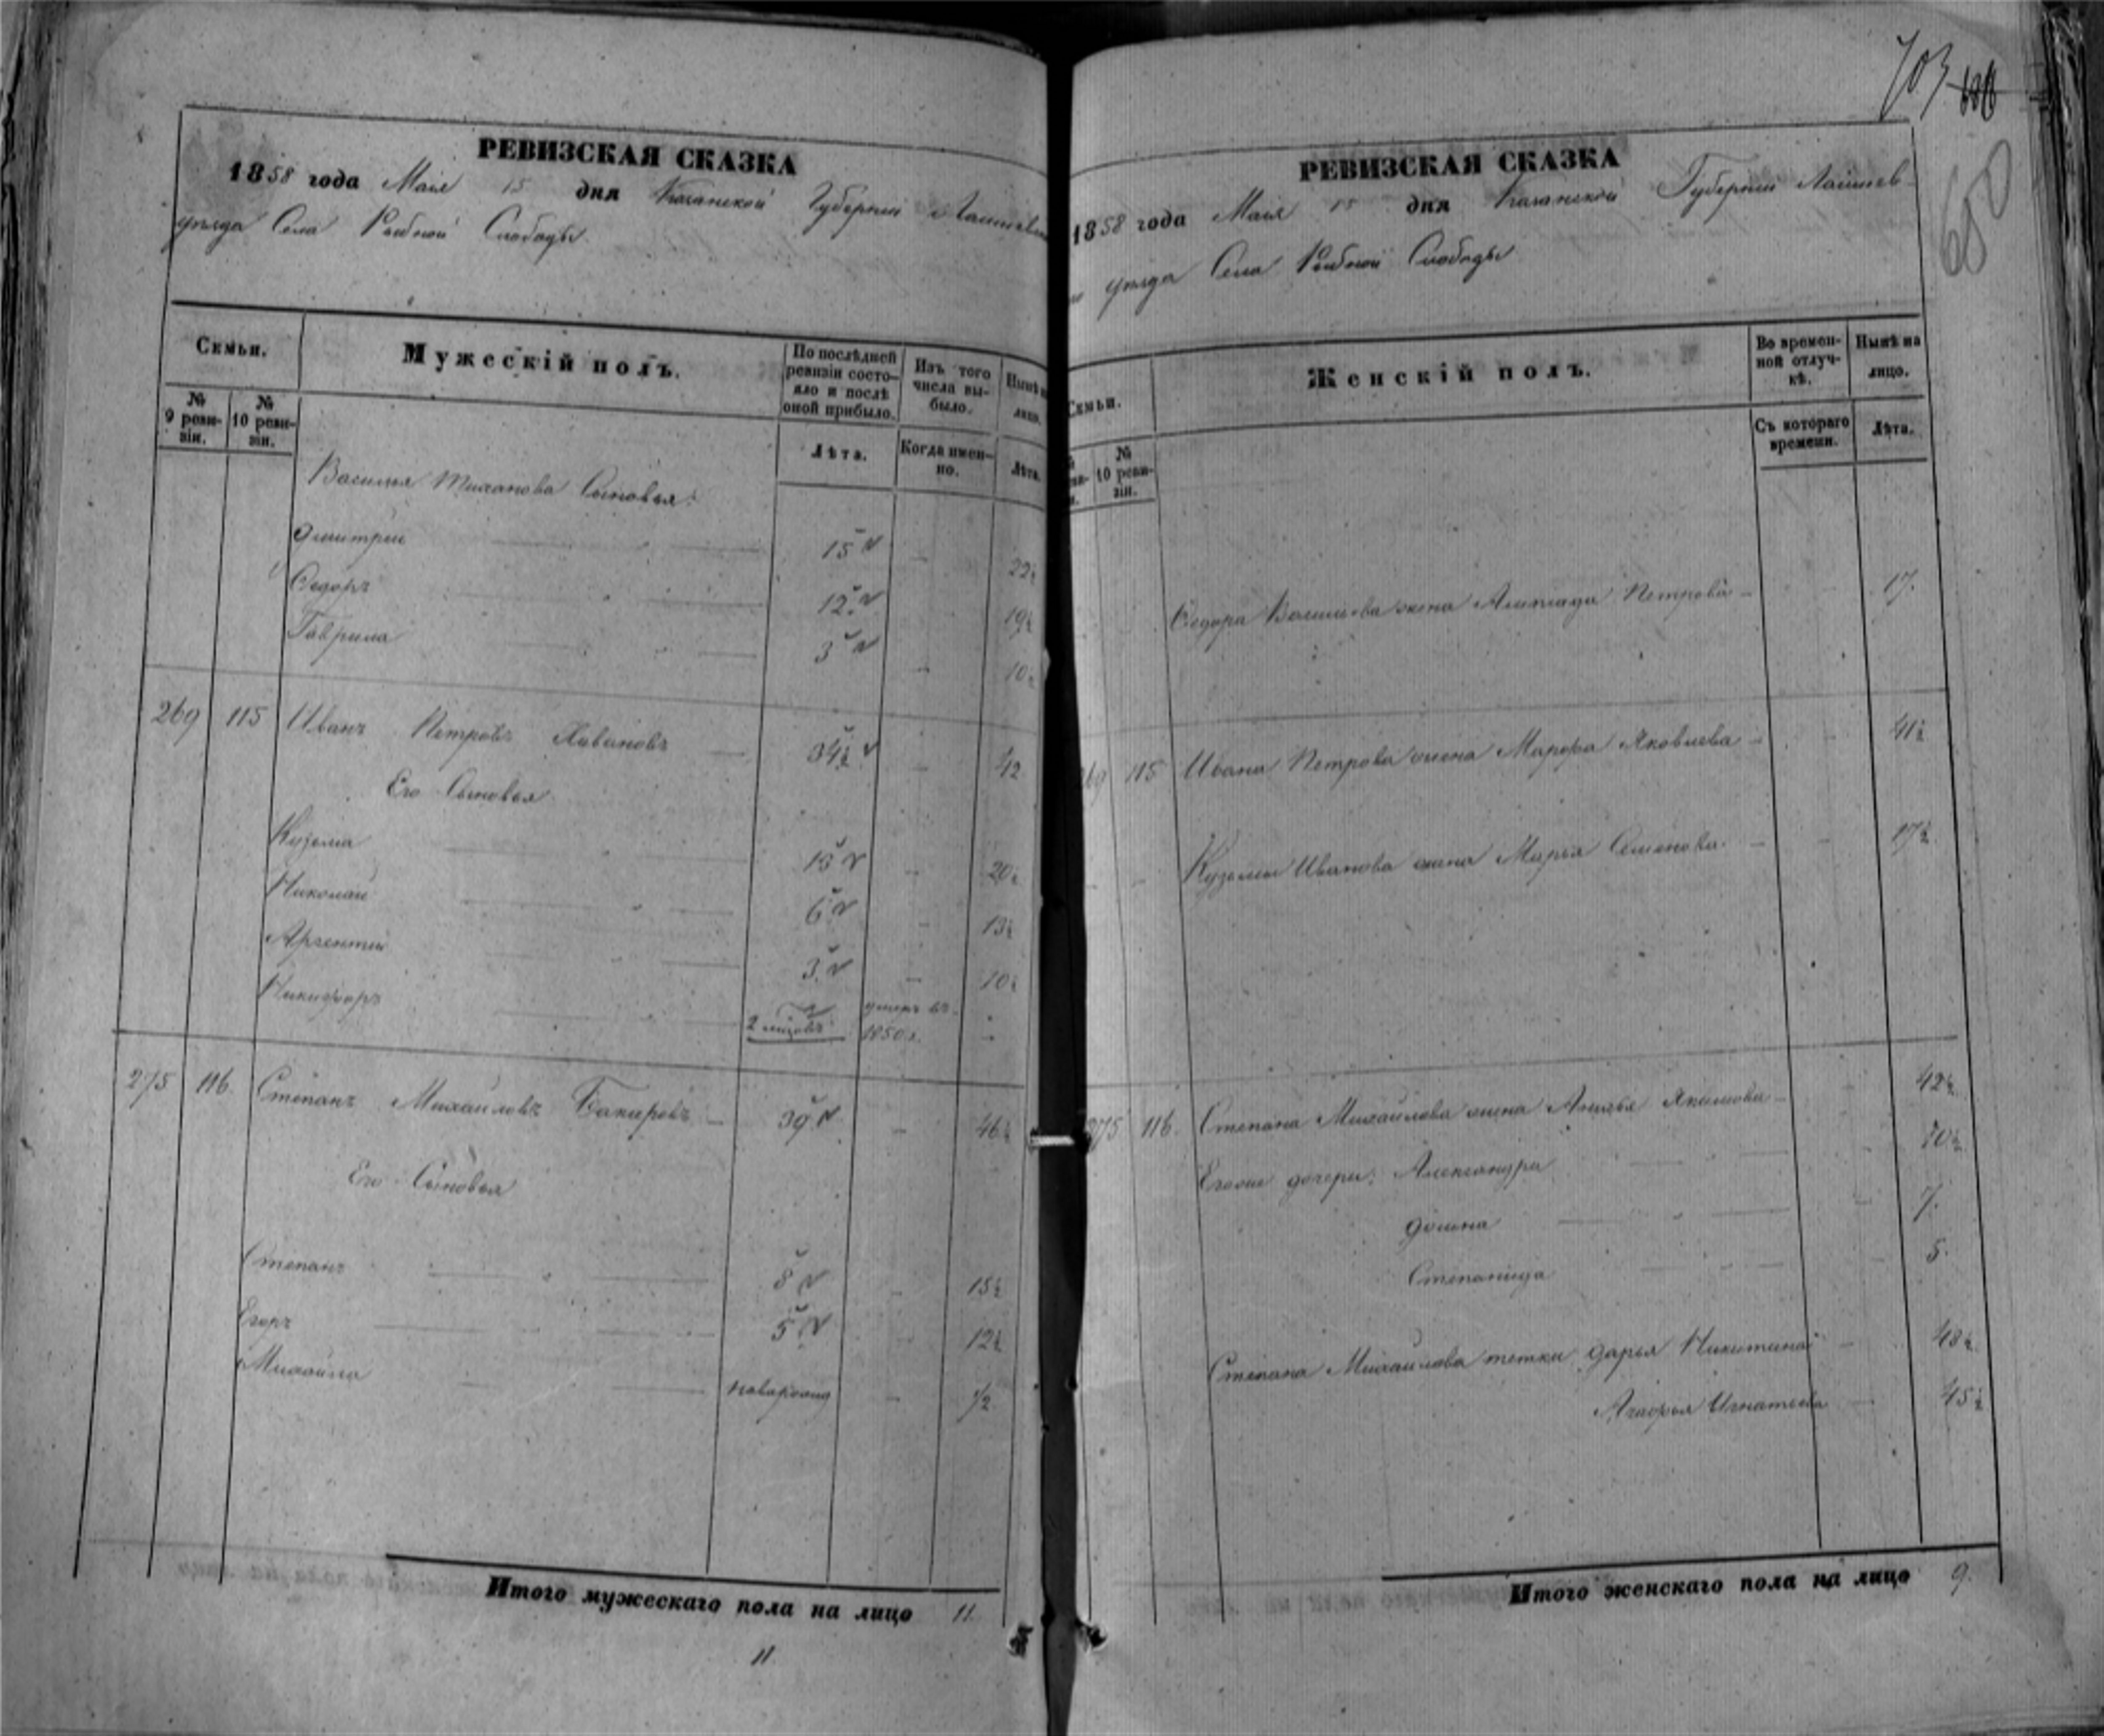 703
650
РЕВИЗСКАЯ СКАЗКА
1858 года Маія 15 дня Казанской Губерніи Лаишевска
уѣзда Села Рыбной Слободы
Семьи.
Мужескій полъ.
По послѣдней ревизіи состояло и послѣ оной прибыло.
Изъ того числа выбыло.
Нынѣ на лицо.
№ 9 ревизіи.
№ 10 ревизіи.
Лѣта.
Когда именно.
Лѣта.
Василья Сыновья:
Дмитрей 15 — 22½
Ѳедоръ 12 19½
Гаврила 3 — 10½
269 115 Иванъ Петровъ — 34½ — 42
Его Сыновья
Кузьма 13 — 20½
Николай 6 — 13½
3 — 10½
Никифоръ умеръ въ 1850 г. —
275 116. Степанъ Михайловъ — 39 — 46½
Его Сыновья
Степанъ 8 — 15½
Егоръ 5 12½
Михайла новорожд — ½
Итого мужескаго пола на лицо 11.
11
РЕВИЗСКАЯ СКАЗКА
1858 года Маія 15 дня Казанской Губерніи Лаишев
уѣзда Села Рыбной Слободы
Семьи.
Женскій полъ.
Во временной отлучкѣ.
Нынѣ на лицо.
№ 10 ревизіи.
Съ котораго времени.
Лѣта.
Ѳедора Васильева жена Петрова — 17.
269 115 Ивана Петрова жена Марфа Яковлева — 41½
Кузьмы Иванова жена Марья Семенова — 17½
275 116. Степана Михайлова жена Акимова — 42½
Егоже дочери: Александра 10½
Домна 7.
Степанида 5.
Степана Михайлова тетки Дарья Никитина — 48½
Агафья Игнатьева 45½
Итого женскаго пола на лицо 9.